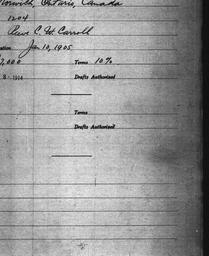 Norwich, Ontario, Canada
1204
C. W. Carroll
Jan 10, 1905
,000 Terms 10%
8 - 1904 Drafts Authorized
Terms
Drafts Authorized